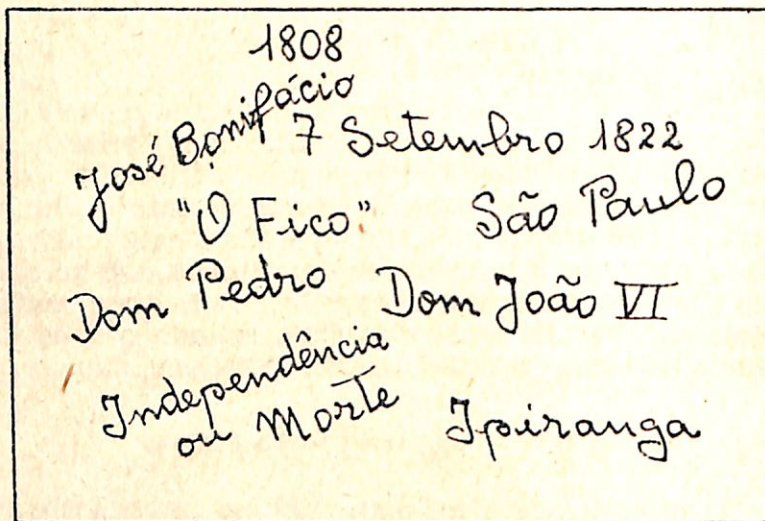 1808
José Bonifácio
7 Setembro 1822
"O Fico"
São Paulo
Dom Pedro
Dom João VI
Independência
ou Morte
Ipiranga